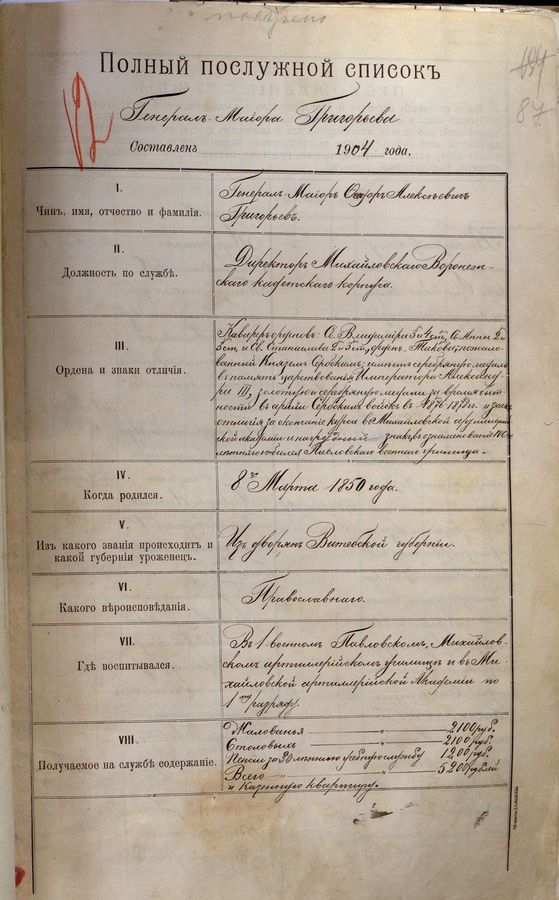 87
12
Полный послужной списокъ
Генералъ-Маіора Григорьева
Составленъ 1904 года.
I.
Чинъ, имя, отчество и фамилія.
Генералъ-Маіоръ Ѳедоръ Алексѣевичъ
Григорьевъ.
II.
Должность по службѣ.
Директоръ Михайловскаго Воронеж-
скаго кадетскаго корпуса.
III.
Ордена и знаки отличія.
Кавалеръ орденовъ: Св. Владиміра 3 и 4 ст, Св. Анны 2 и
3 ст и Св. Станислава 2 и 3 ст, орденъ Таковы, пожало-
ванный Княземъ Сербскимъ; имѣетъ серебряную медаль
въ память царствованія Императора Александ-
ра III, золотую и серебряную медали за время быт-
ности въ арміи Сербскихъ войскъ въ 1876 г. и знаки
отличія за окончаніе курса въ Михайловской артиллерій-
ской академіи и нагрудный знакъ въ ознаменованіе 100
лѣтняго юбилея Павловскаго военнаго училища.
IV.
Когда родился.
8го Марта 1850 года.
V.
Изъ какого званія происходитъ и
какой губерніи уроженецъ.
Изъ дворянъ Витебской губерніи.
VI.
Какого вѣроисповѣданія.
Православнаго.
VII.
Гдѣ воспитывался.
Въ 1 военномъ Павловскомъ, Михайлов-
скомъ артиллерійскомъ училищѣ и въ Ми-
хайловской артиллерійской Академіи по
1му разряду.
VIII.
Получаемое на службѣ содержаніе.
Жалованья — „ — 2100 руб.
Столовыхъ — „ — 2100 руб.
Пенсіи за 30 лѣтнюю учебную службу 1200 руб.
Всего — „ — 5200 рублей
и казенную квартиру.